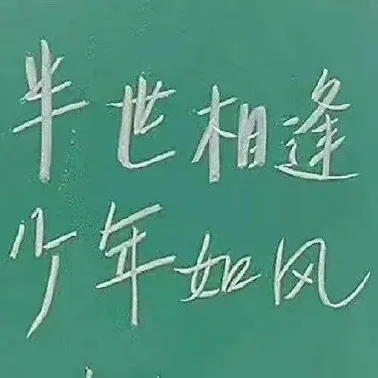 半世相逢
少年如风